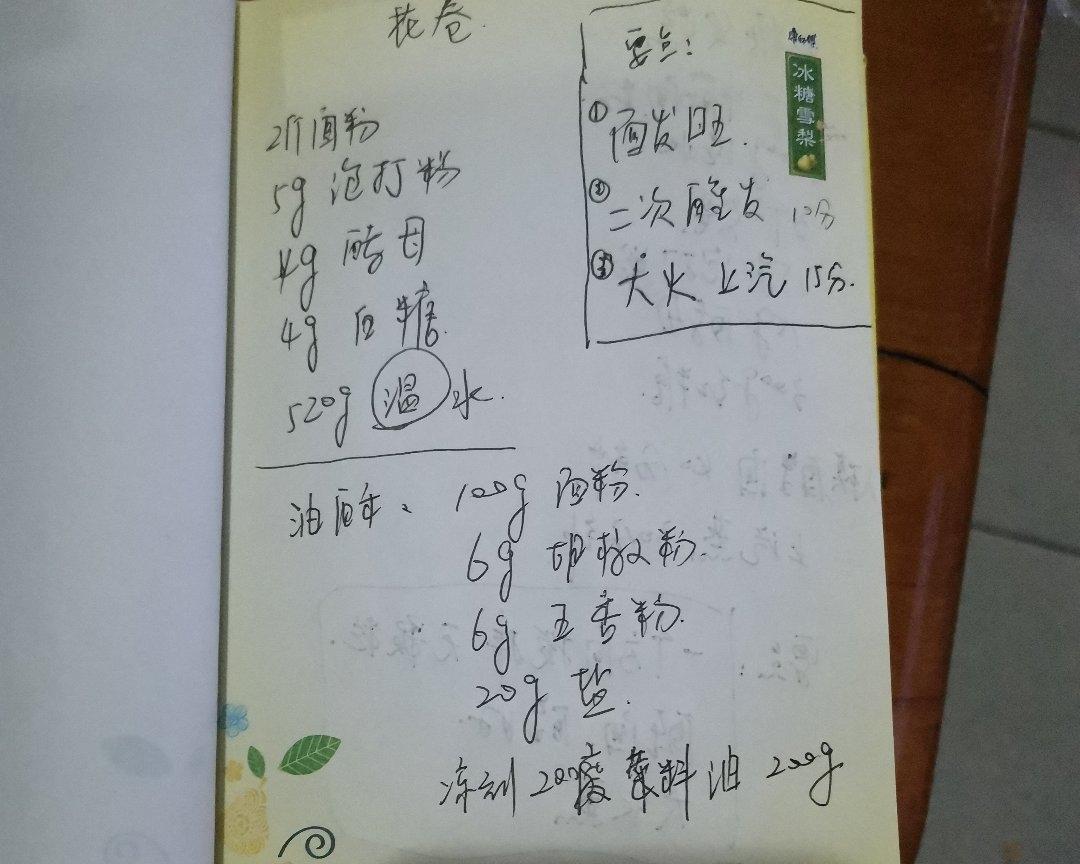 花卷.
2斤面粉
5g 泡打粉
4g 酵母
4g 白糖.
520g 温水.
要点:
① 面发旺.
② 二次醒发 10分
③ 大火上汽 15分.
康师傅
冰糖雪梨
油酥、100g 面粉.
6g 胡椒粉.
6g 五香粉.
20g 盐.
200度 料油 200g